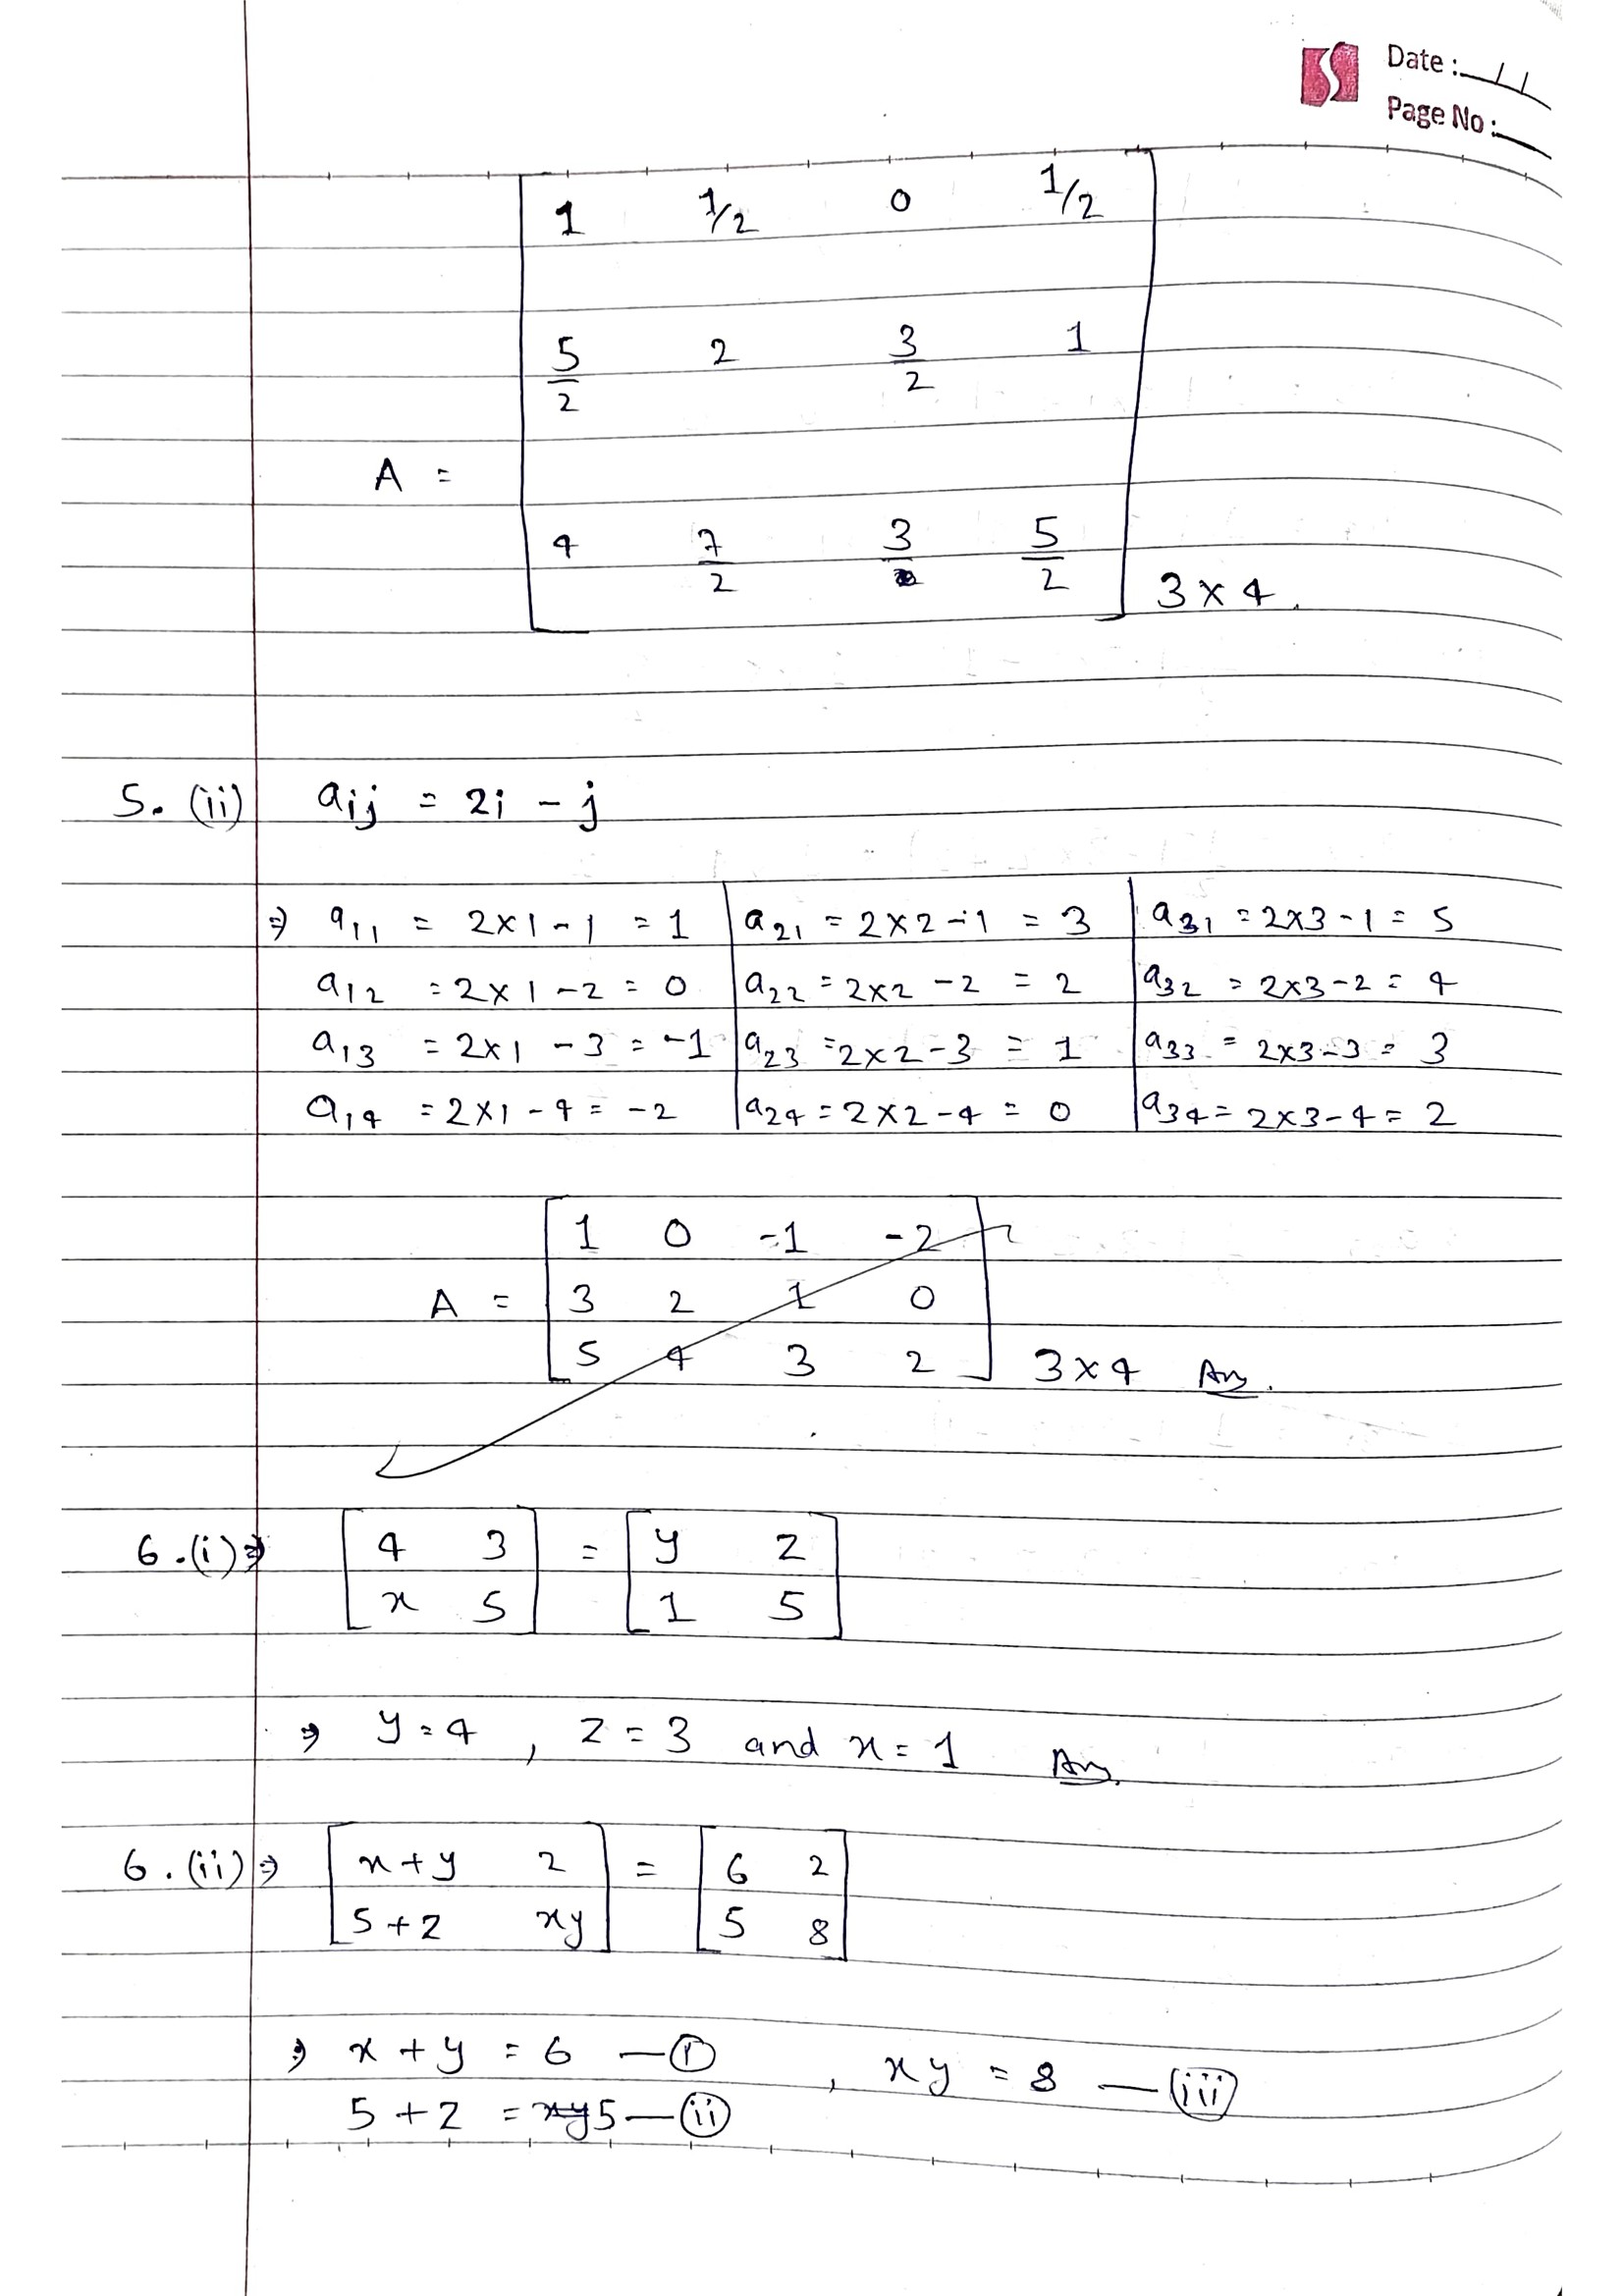 Date :
Page No :
1 1/2 0 1/2
5/2 2 3/2 1
A =
4 7/2 3 5/2
3 x 4.
5. (ii) aij = 2i - j
⇒ a11 = 2x1-1 = 1 a21 = 2x2-1 = 3 a31 = 2x3-1 = 5
a12 = 2x1-2 = 0 a22 = 2x2-2 = 2 a32 = 2x3-2 = 4
a13 = 2x1-3 = -1 a23 = 2x2-3 = 1 a33 = 2x3-3 = 3
a14 = 2x1-4 = -2 a24 = 2x2-4 = 0 a34 = 2x3-4 = 2
1 0 -1 -2
A = 3 2 1 0
5 4 3 2 3x4 Ans.
6.(i)⇒ 4 3 = y z
x 5 1 5
⇒ y=4, z=3 and x=1 Ans.
6.(ii)⇒ x+y 2 = 6 2
5+z xy 5 8
⇒ x+y = 6 —(i) , xy = 8 —(iii)
5+z = 5 —(ii)